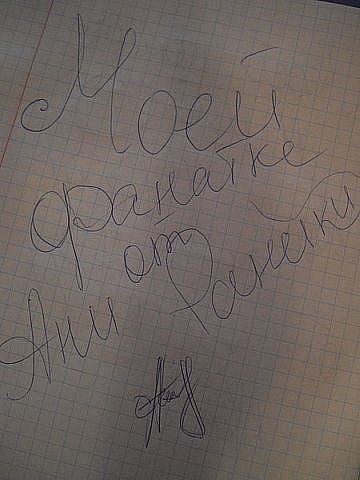 Моей
фанатке
от
Ани Ранетки